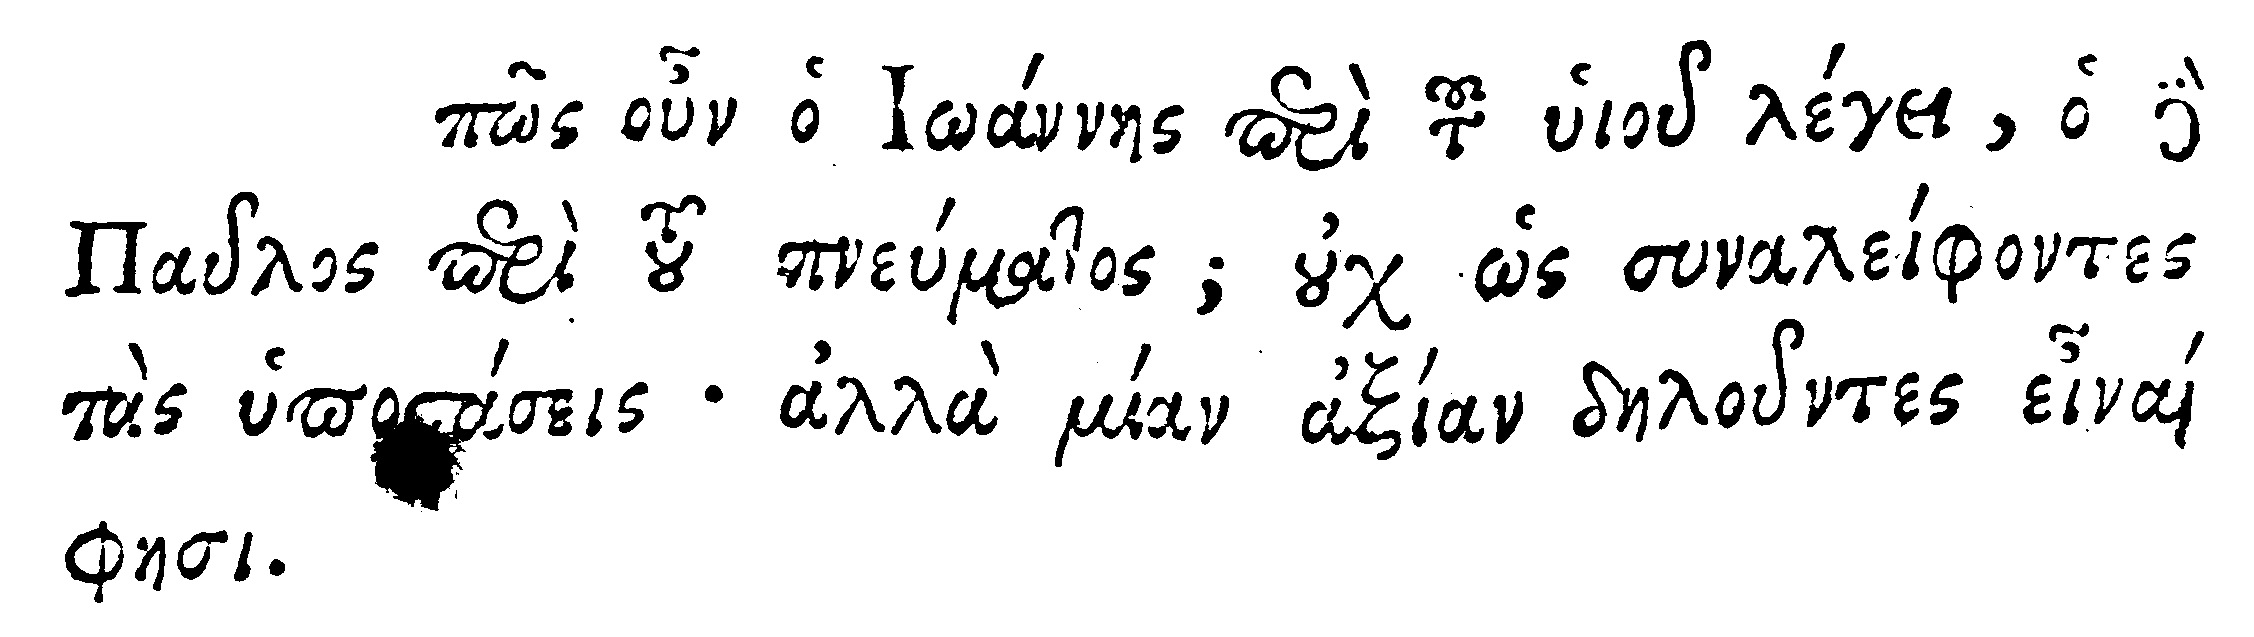 πῶς οὖν ὁ Ἰωάννης περὶ τοῦ υἱοῦ λέγει, ὁ δὲ
Παῦλος περὶ τοῦ πνεύματος; οὐχ ὡς συναλείφοντες
τὰς ὑποστάσεις· ἀλλὰ μίαν ἀξίαν δηλοῦντες εἶναί
φησι.